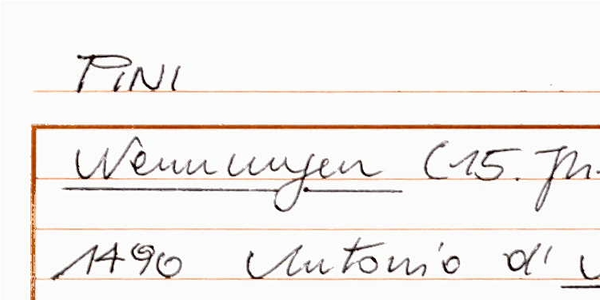 PINI
Nennungen (15. Jh.
1490 Antonio d'